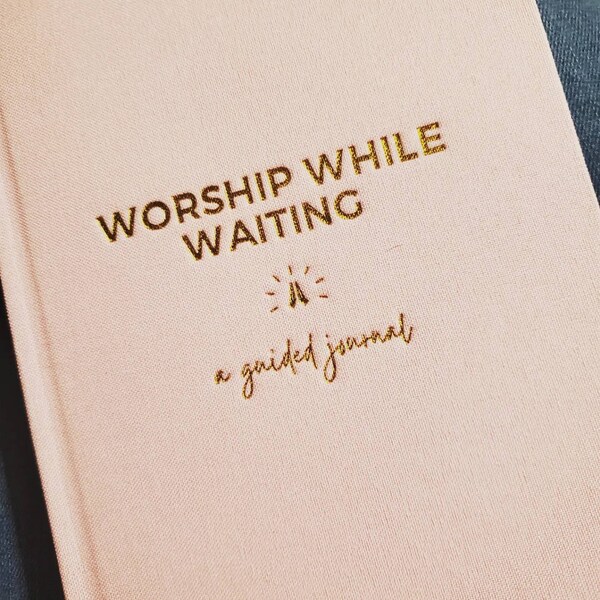 WORSHIP WHILE
WAITING
a guided journal